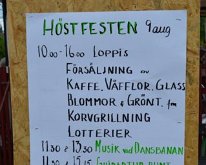 HÖSTFESTEN 9 aug
10.00-16.00 LOPPIS
FÖRSÄLJNING av
KAFFE, VÅFFLOR, GLASS
BLOMMOR & GRÖNT, fm
KORVGRILLNING
LOTTERIER
11.30 & 13.30 MUSIK VID DANSBANAN
11.30 & 15.15